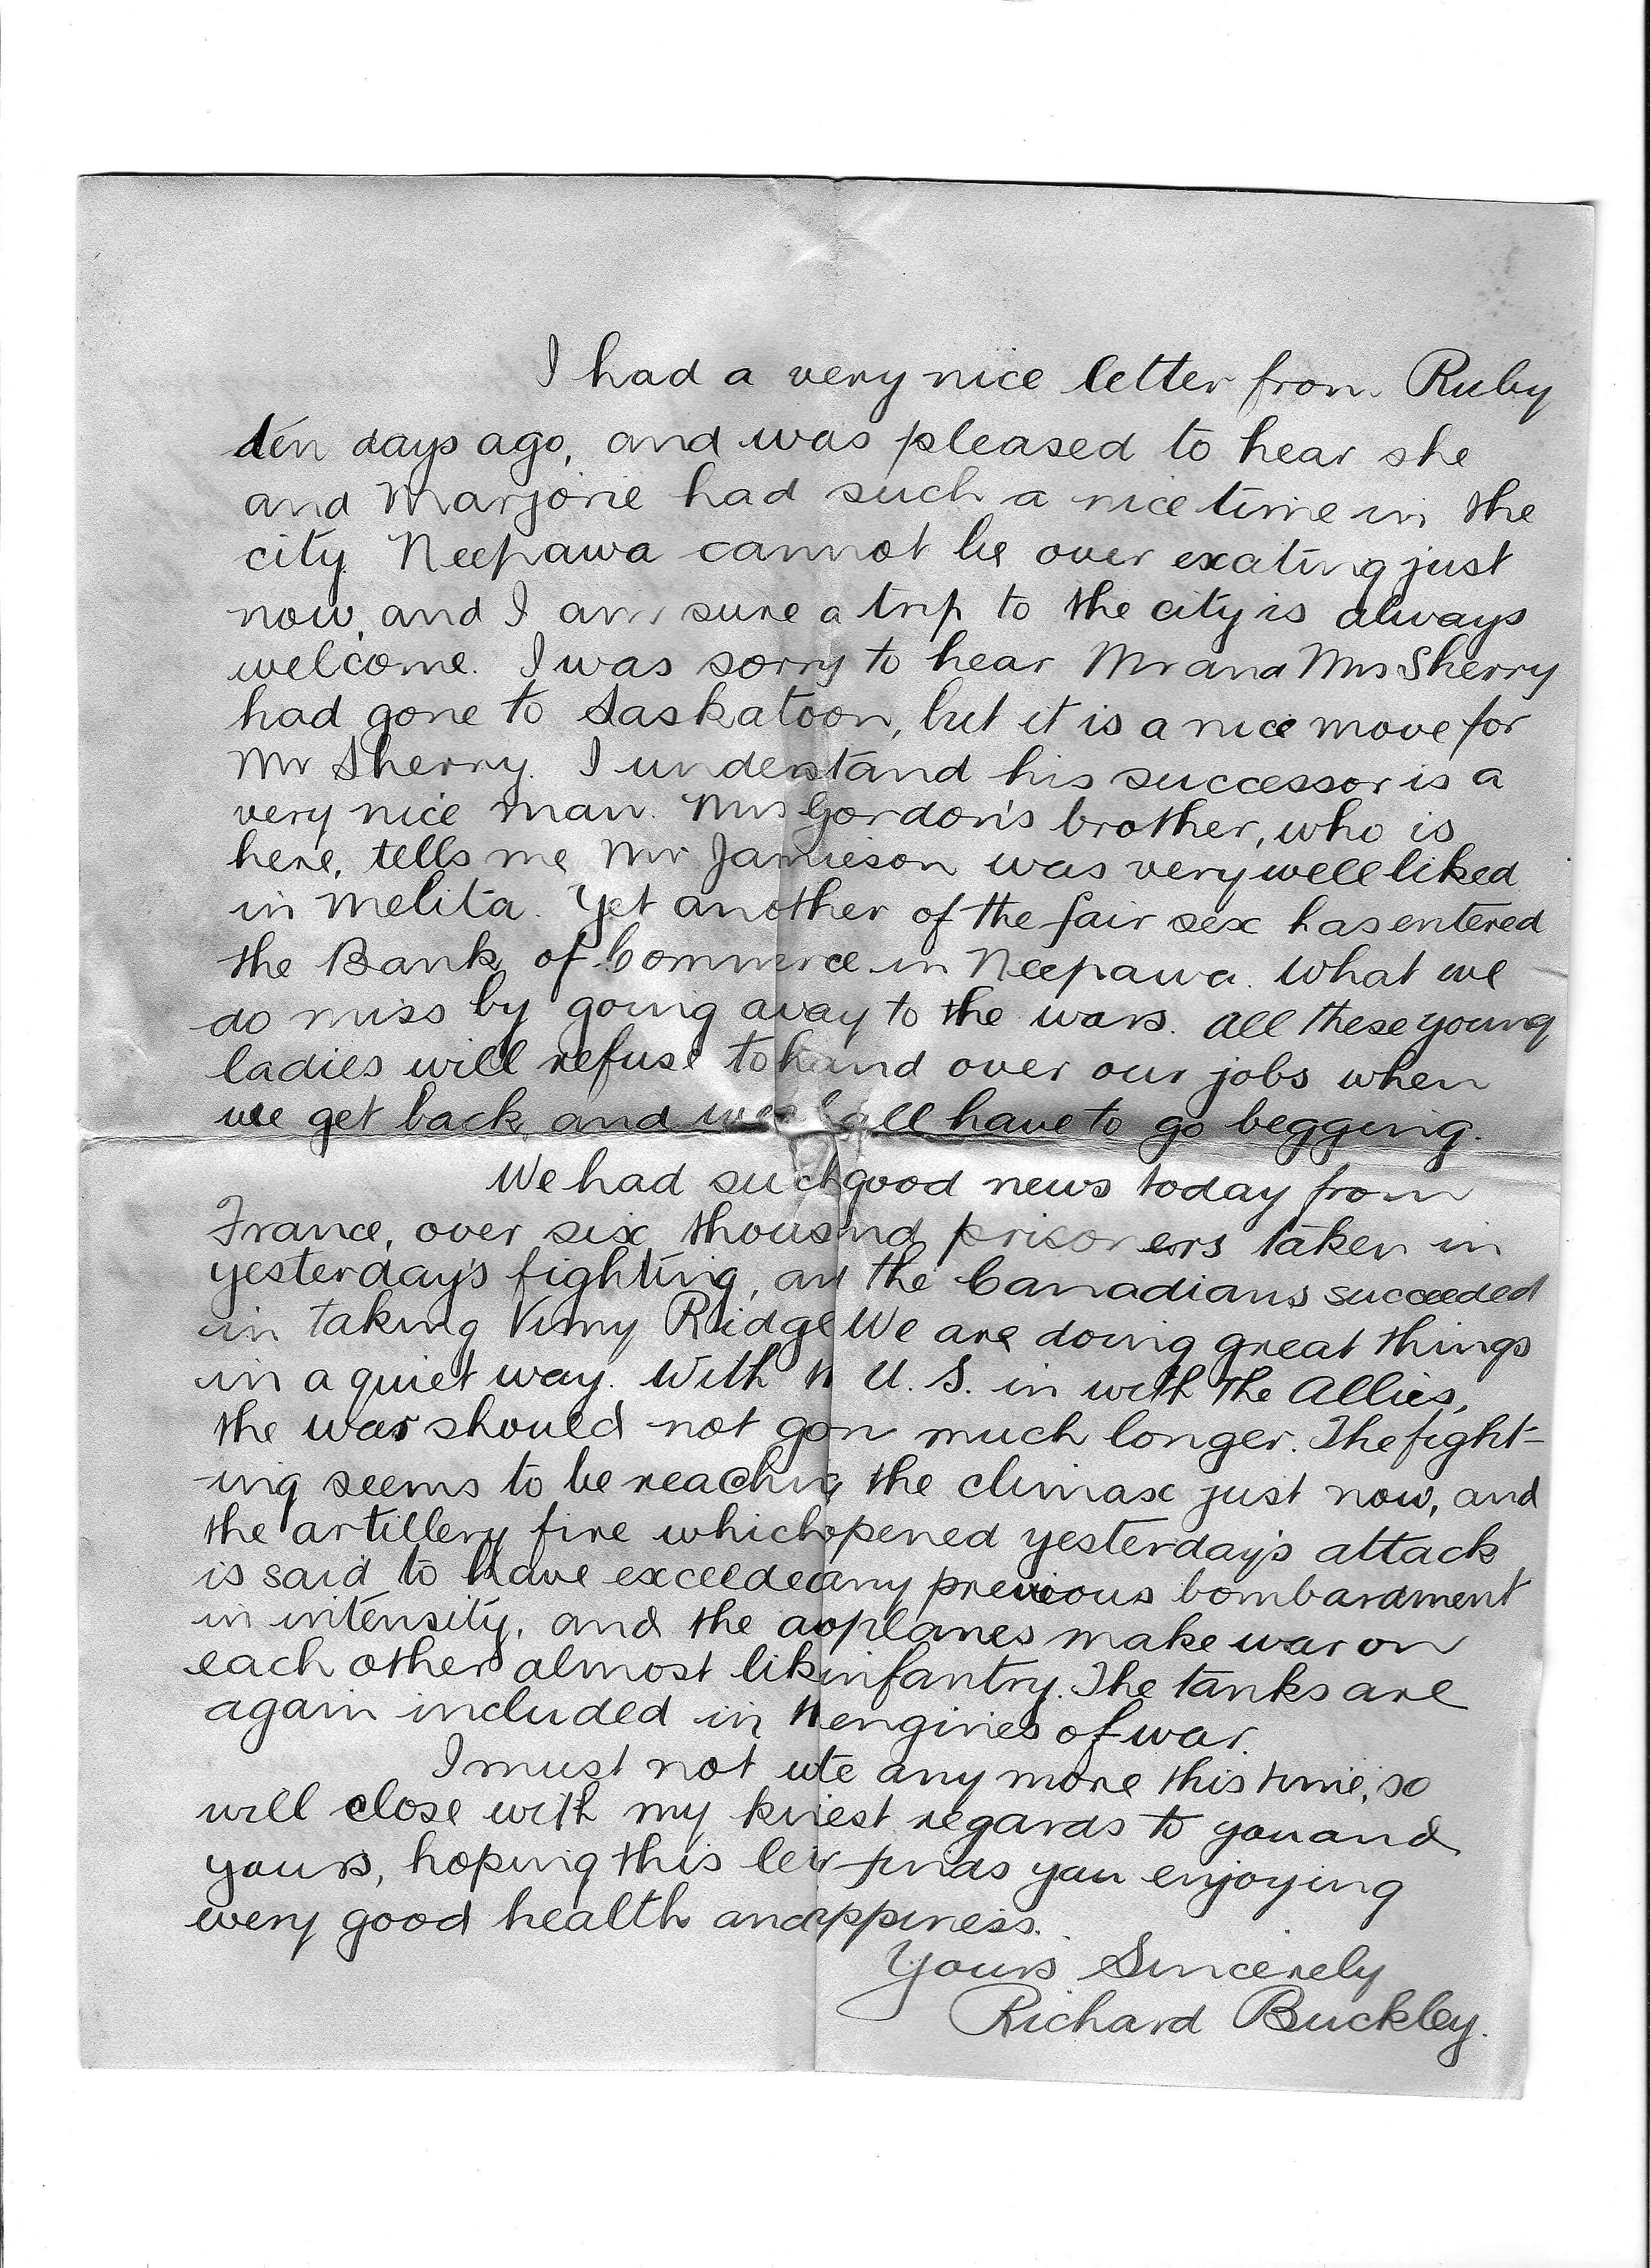 I had a very nice letter from Ruby
ten days ago, and was pleased to hear she
and Marjorie had such a nice time in the
city. Neepawa cannot be over exciting just
now, and I am sure a trip to the city is always
welcome. I was sorry to hear Mr and Mrs Sherry
had gone to Saskatoon, but it is a nice move for
Mr Sherry. I understand his successor is a
very nice man. Mrs Gordon's brother, who is
here, tells me Mr Jamieson was very well liked
in Melita. Yet another of the fair sex has entered
the Bank of Commerce in Neepawa. What we
do miss by going away to the wars. All these young
ladies will refuse to hand over our jobs when
we get back, and we all have to go begging.
We had such good news today from
France, over six thousand prisoners taken in
yesterday's fighting, and the Canadians succeeded
in taking Vimy Ridge We are doing great things
in a quiet way. With U. S. in with the Allies,
the war should not go on much longer. The fight-
ing seems to be reaching the climax just now, and
the artillery fire which opened yesterday's attack
is said to have exceeded any previous bombardment
in intensity, and the aeroplanes make war on
each other almost like infantry. The tanks are
again included in engines of war.
I must not write any more this time, so
will close with my kindest regards to you and
yours, hoping this letter finds you enjoying
very good health and happiness.
Yours Sincerely
Richard Buckley.